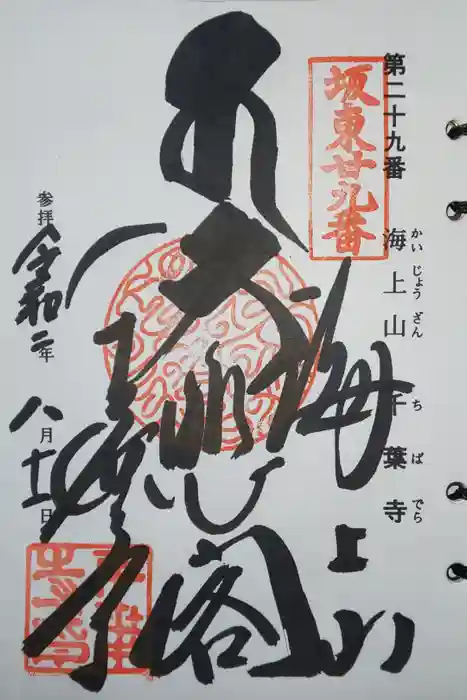 坂東廿九番
第二十九番 海上山 千葉寺
かい じょう ざん ち ば でら
海上山
大悲閣
千葉寺
参拝 令和二年 八月十一日